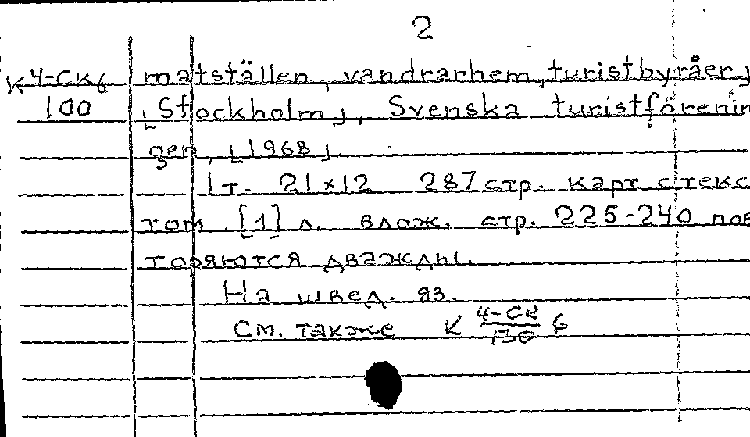 2
К 4-СКб matställen, vandrarhem, turistbyråer,
100 [Stockholm], Svenska turistförenin
gen, [1968].
1 т. 21×12 287 стр. карт. с текс
том. [1] л. влож. стр. 225-240 пов
торяются дважды.
На швед. яз.
См. также К 4-СК б